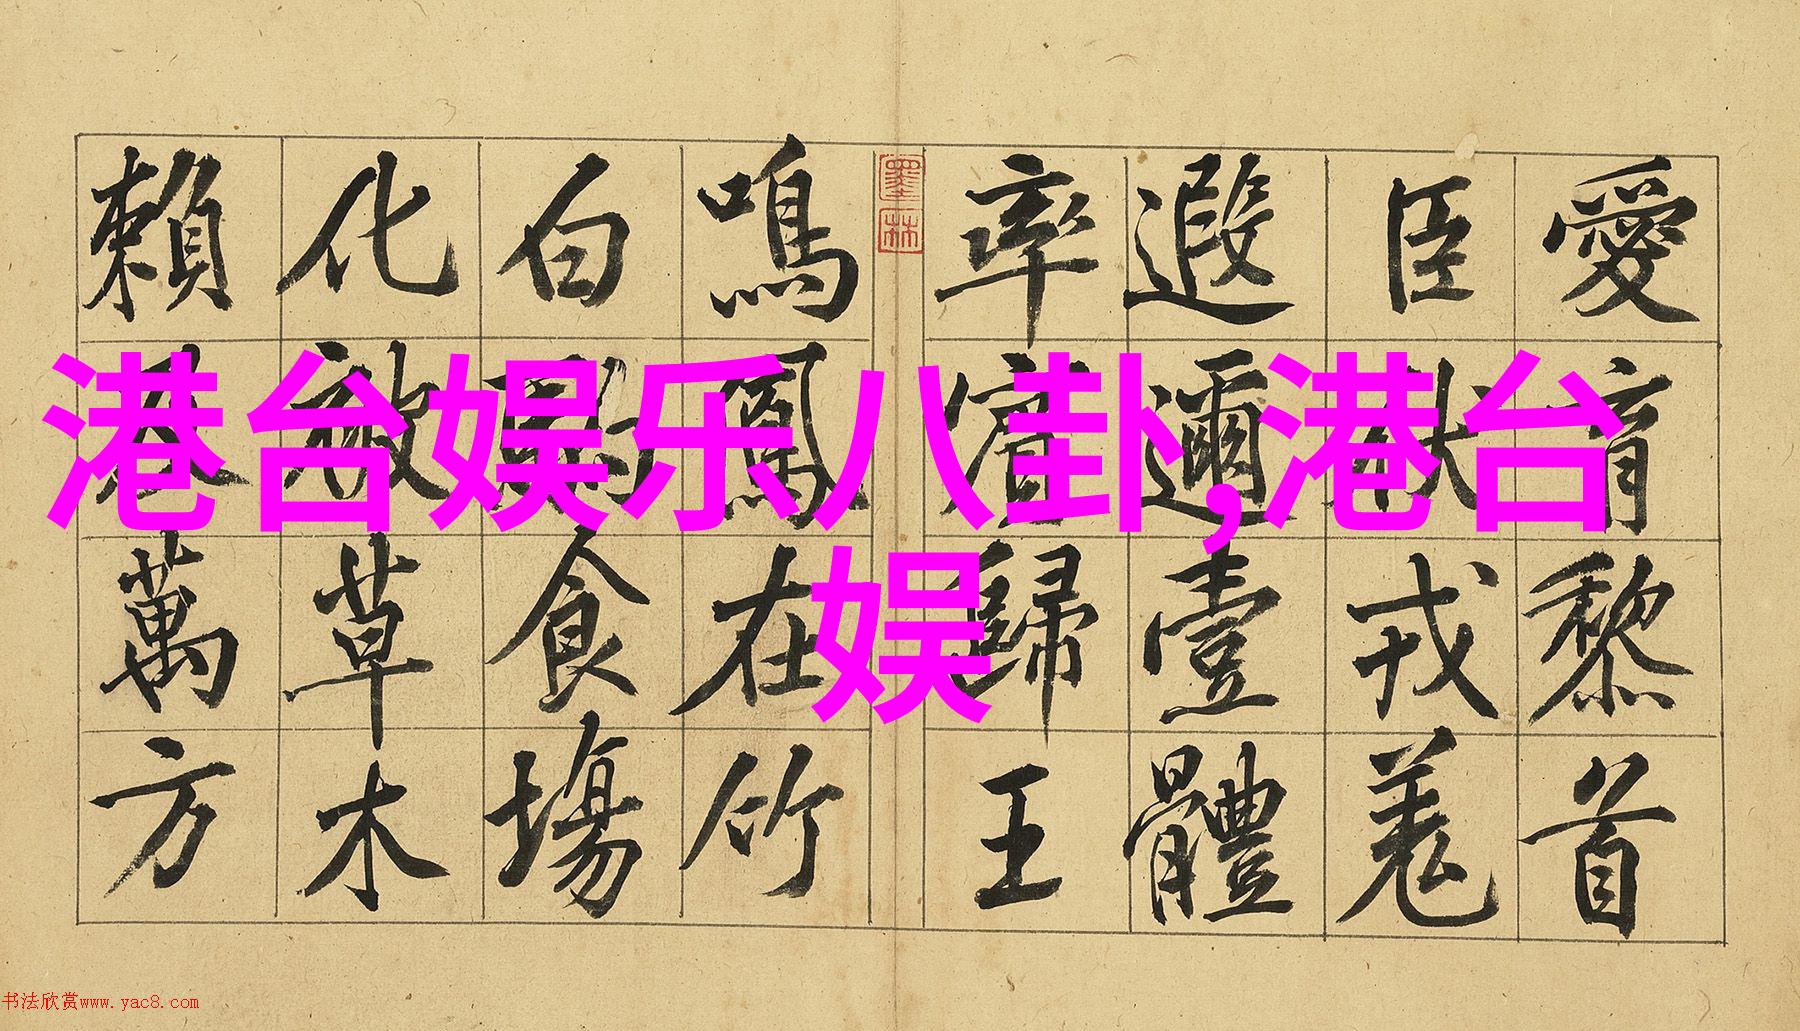 港台娱乐八卦,港台
娱
愛育黎首
臣伏戎羌
遐邇壹體
率賓歸王
墨林
鳴鳳在竹
白食場
化被草木
賴萬方
书法欣赏www.yac8.com